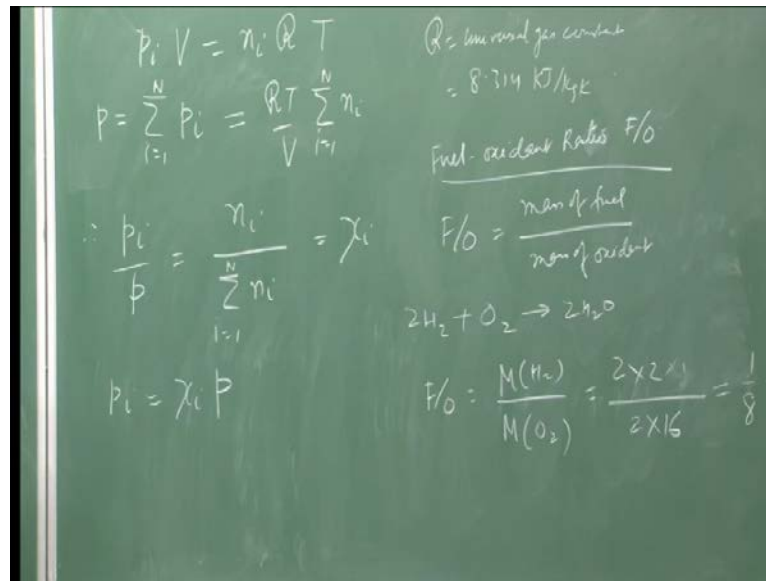 p_i V = n_i R T
p = \sum_{i=1}^{N} p_i = \frac{RT}{V} \sum_{i=1}^{N} n_i
∴ \frac{p_i}{p} = \frac{n_i}{\sum_{i=1}^{N} n_i} = χ_i
p_i = χ_i p
R = universal gas constant
= 8.314 KJ/kgK
Fuel-oxidant Ratio F/O
F/O = \frac{mass of fuel}{mass of oxidant}
2H_2 + O_2 → 2H_2O
F/O = \frac{M(H_2)}{M(O_2)} = \frac{2×2×1}{2×16} = \frac{1}{8}